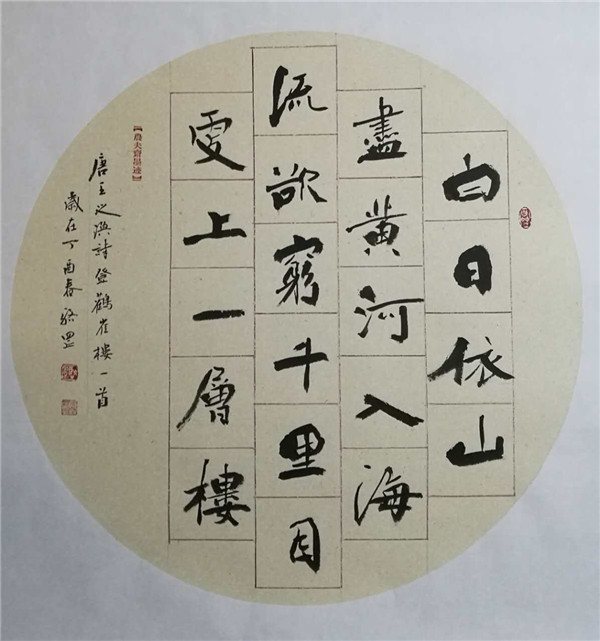 白日依山
盡黃河入海
流欲窮千里目
更上一層樓
【農夫 墨迹】
唐王之渙詩登鸛雀樓一首
歲在丁酉春